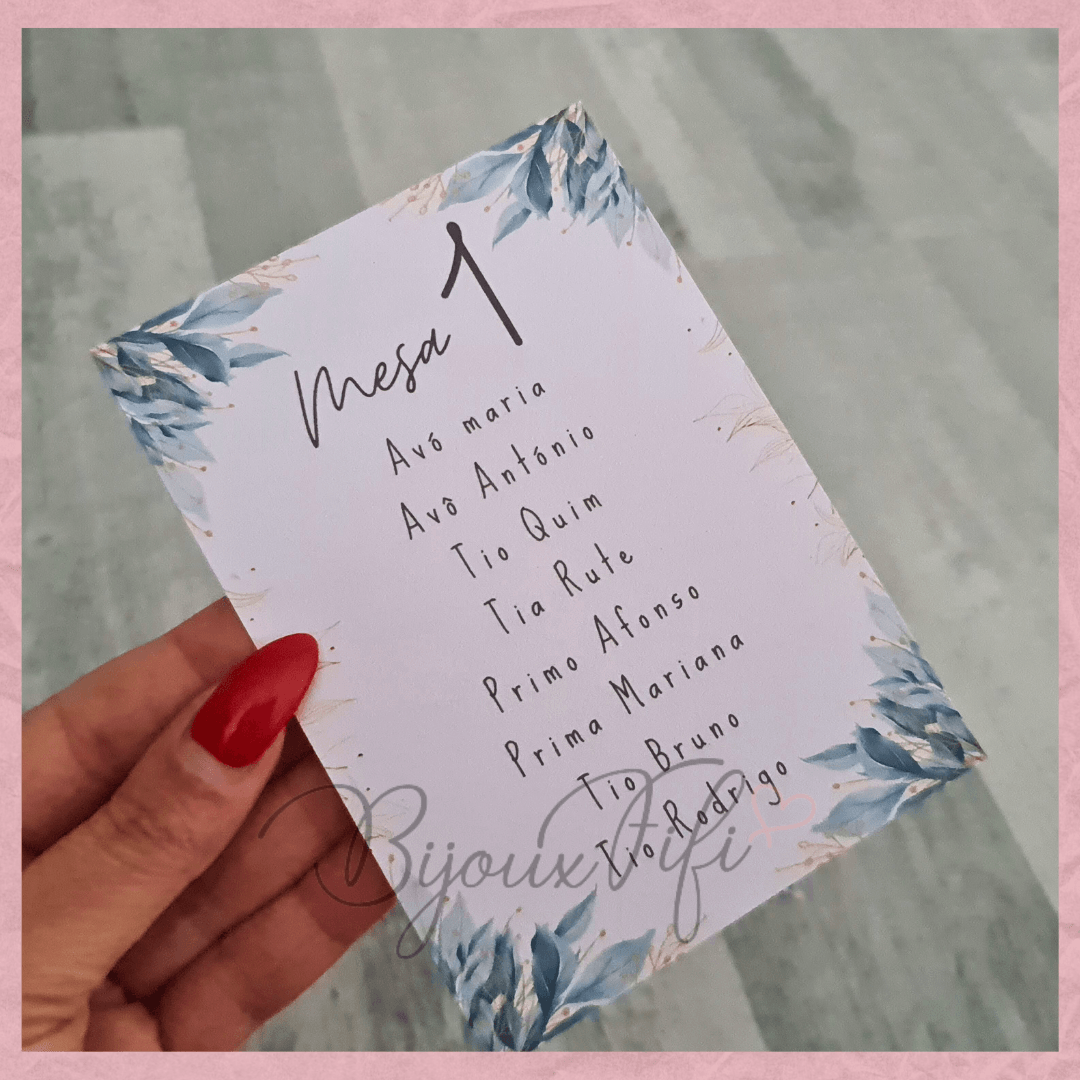 Mesa 1
Avó maria
Avô António
Tio Quim
Tia Rute
Primo Afonso
Prima Mariana
Tio Bruno
Tio Rodrigo
BijouxFifi